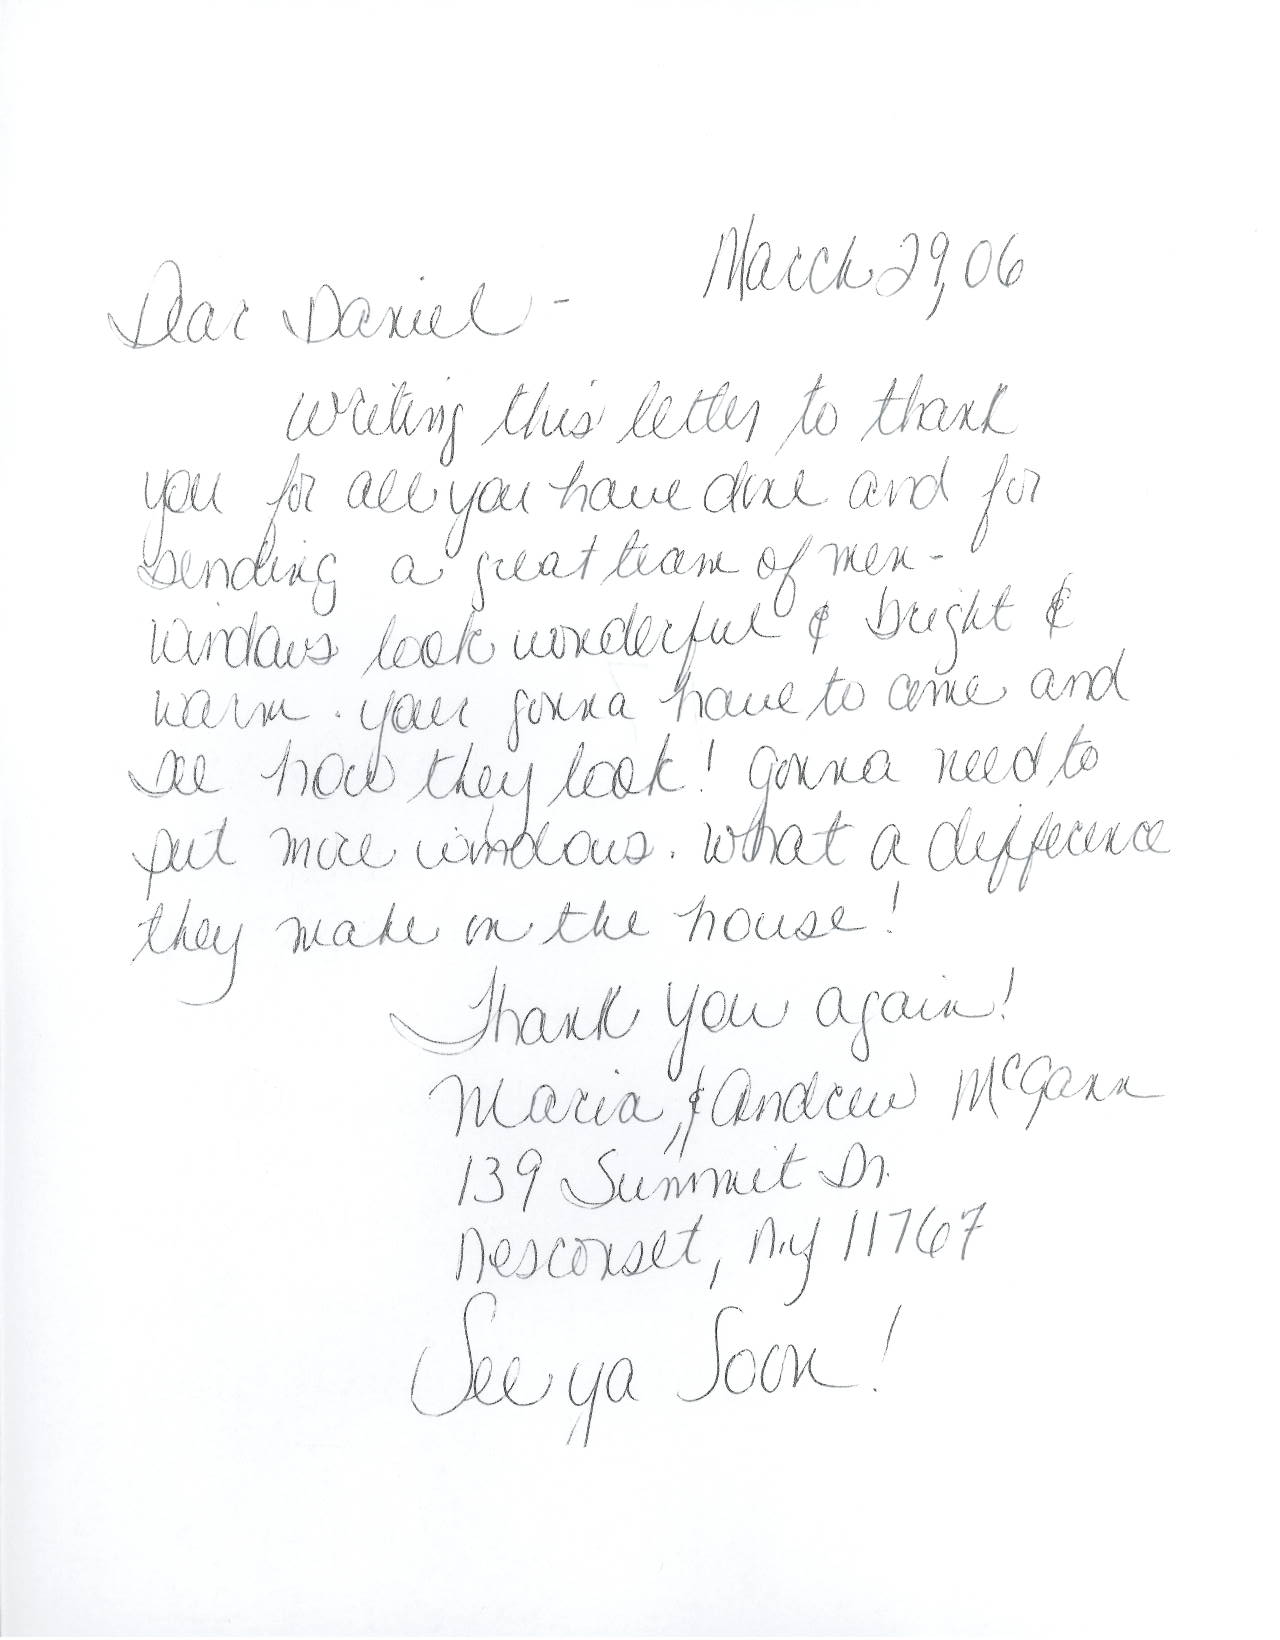 March 29, 06
Dear Daniel -
Writing this letter to thank
you for all you have done and for
sending a great team of men -
windows look wonderful & bright &
warm. your gonna have to come and
see how they look! Gonna need to
put more windows. What a difference
they make on the house!
Thank you again!
Maria, & Andrew McGann
139 Summit Dr.
Nesconset, N.y 11767
See ya Soon!